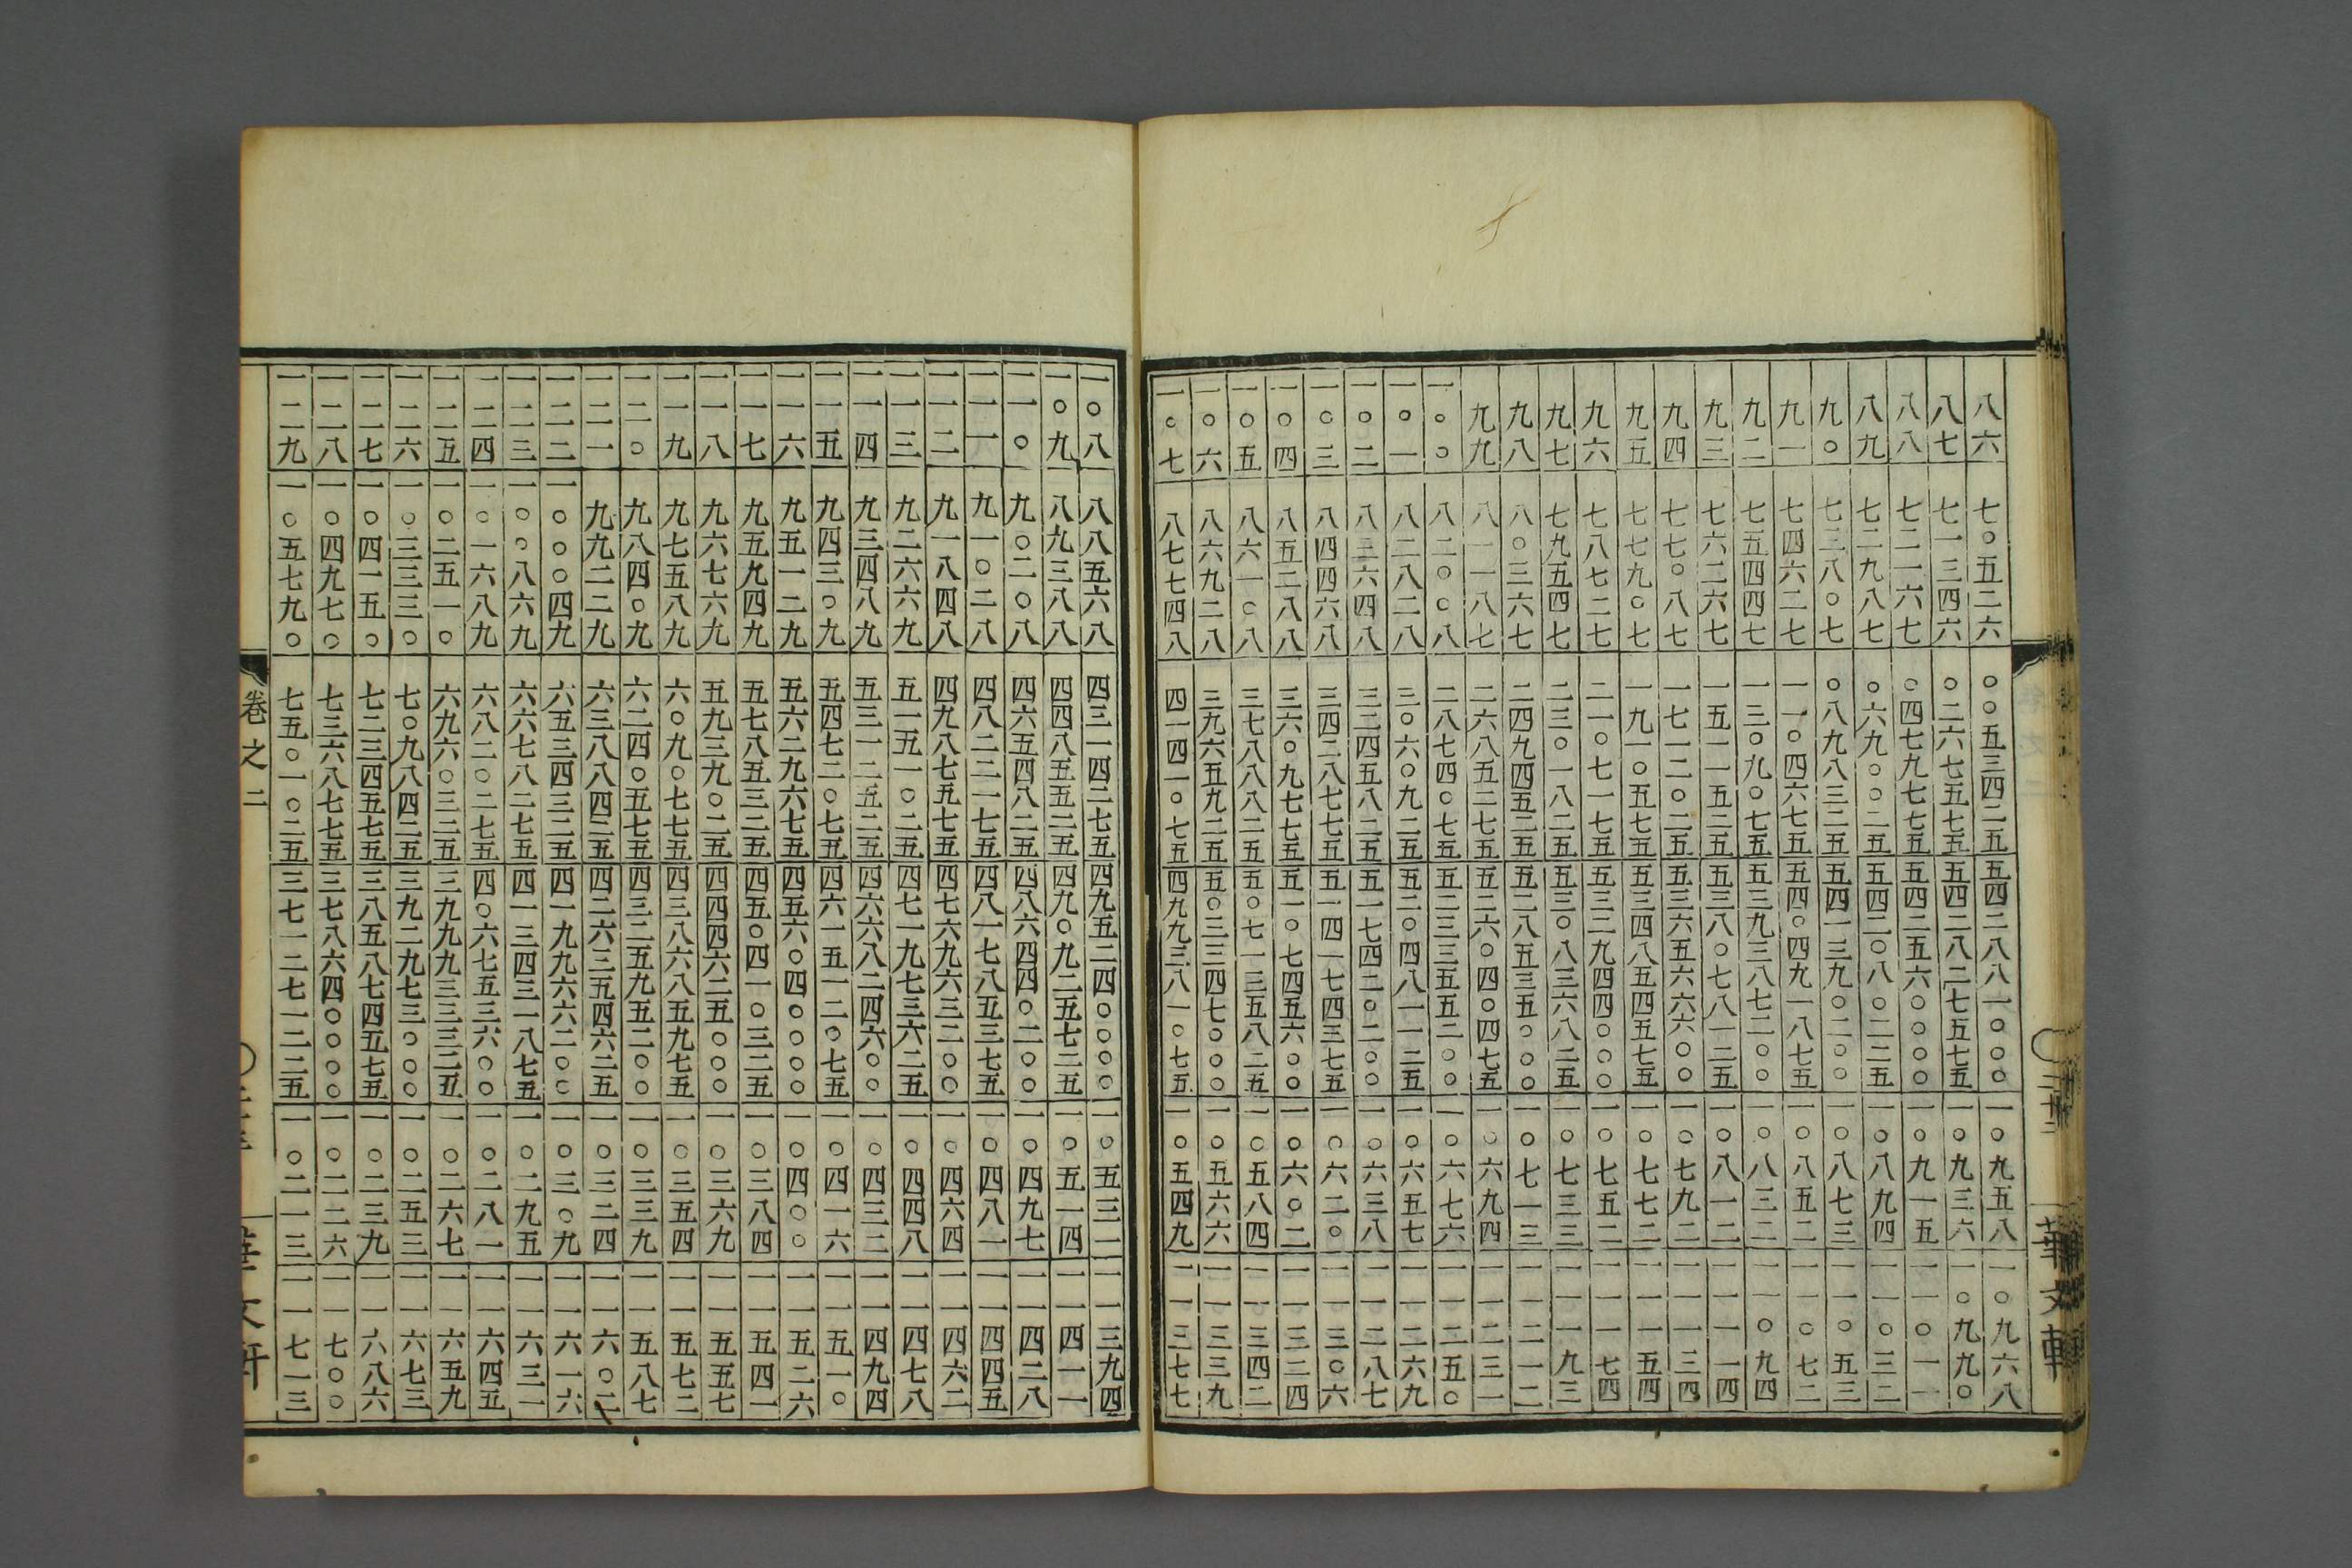 八六 七〇五二六 〇〇五三四二五 五四二八八一〇〇〇 一〇九五八 一〇九六八
八七 七一三四六 〇二六七五七五 五四二八二七五七五 一〇九三六 一〇九九〇
八八 七二一六七 〇四七九七七五 五四二五六〇〇〇〇 一〇九一五 一一〇一一
八九 七二九八七 〇六九〇〇二五 五四二〇八〇二二五 一〇八九四 一一〇三二
九〇 七三八〇七 〇八九八三二五 五四一三九〇二〇〇 一〇八七三 一一〇五三
九一 七四六二七 一一〇四六七五 五四〇四九一八七五 一〇八五二 一一〇七二
九二 七五四四七 一三〇九〇七五 五三九三八七二〇〇 一〇八三二 一一〇九四
九三 七六二六七 一五一一五二五 五三八〇七八一二五 一〇八一二 一一一一四
九四 七七〇八七 一七一二〇二五 五三六五六六六〇〇 一〇七九二 一一一三四
九五 七七九〇七 一九一〇五七五 五三四八五四五七五 一〇七七二 一一一五四
九六 七八七二七 二一〇七一七五 五三二九四四〇〇〇 一〇七五二 一一一七四
九七 七九五四七 二三〇一八二五 五三〇八三六八二五 一〇七三三 一一一九三
九八 八〇三六七 二四九四五二五 五二八五三五〇〇〇 一〇七一三 一一二一二
九九 八一一八七 二六八五二七五 五二六〇四〇四七五 一〇六九四 一一二三一
一〇〇 八二〇〇八 二八七四〇七五 五二三三五五二〇〇 一〇六七六 一一二五〇
一〇一 八二八二八 三〇六〇九二五 五二〇四八一一二五 一〇六五七 一一二六九
一〇二 八三六四八 三二四五八二五 五一七四二〇二〇〇 一〇六三八 一一二八七
一〇三 八四四六八 三四二八七七五 五一四一七四三七五 一〇六二〇 一一三〇六
一〇四 八五二八八 三六〇九七七五 五一〇七四五六〇〇 一〇六〇二 一一三二四
一〇五 八六一〇八 三七八八八二五 五〇七一三五八二五 一〇五八四 一一三四二
一〇六 八六九二八 三九六五九二五 五〇三三四七〇〇〇 一〇五六六 一一三三九
一〇七 八七七四八 四一四一〇七五 四九九三八一〇七五 一〇五四九 一一三七七
一〇八 八八五六八 四三一四二七五 四九五二四〇〇〇〇 一〇五三二 一一三九四
一〇九 八九三八八 四四八五五二五 四九〇九二五七二五 一〇五一四 一一四一一
一一〇 九〇二〇八 四六五四八二五 四八六四四〇二〇〇 一〇四九七 一一四二八
一一一 九一〇二八 四八二二一七五 四八一七八五三七五 一〇四八一 一一四四五
一一二 九一八四八 四九八七五七五 四七六九六三二〇〇 一〇四六四 一一四六二
一一三 九二六六九 五一五一〇二五 四七一九七三六二五 一〇四四八 一一四七八
一一四 九三四八九 五三一二五二五 四六六八二四六〇〇 一〇四三二 一一四九四
一一五 九四三〇九 五四七二〇七五 四六一五一二〇七五 一〇四一六 一一五一〇
一一六 九五一二九 五六二九六七五 四五六〇四〇〇〇〇 一〇四〇〇 一一五二六
一一七 九五九四九 五七八五三二五 四五〇四一〇三二五 一〇三八四 一一五四一
一一八 九六七六九 五九三九〇二五 四四四六二五〇〇〇 一〇三六九 一一五五七
一一九 九七五八九 六〇九〇七七五 四三八六八五九七五 一〇三五四 一一五七二
一二〇 九八四〇九 六二四〇五七五 四三二五九五二〇〇 一〇三三九 一一五八七
一二一 九九二二九 六三八八四二五 四二六三五四六二五 一〇三二四 一一六〇二
一二二 一〇〇〇四九 六五三四三二五 四一九九六六二〇〇 一〇三〇九 一一六一六
一二三 一〇〇八六九 六六七八二七五 四一三四三一八七五 一〇二九五 一一六三一
一二四 一〇一六八九 六八二〇二七五 四〇六七五三六〇〇 一〇二八一 一一六四五
一二五 一〇二五一〇 六九六〇三二五 三九九九三三三二五 一〇二六七 一一六五九
一二六 一〇三三三〇 七〇九八四二五 三九二九七三〇〇〇 一〇二五三 一一六七三
一二七 一〇四一五〇 七二三四五七五 三八五八七四五七五 一〇二三九 一一六八六
一二八 一〇四九七〇 七三六八七七五 三七八六四〇〇〇〇 一〇二二六 一一七〇〇
一二九 一〇五七九〇 七五〇一〇二五 三七一二七一二二五 一〇二一三 一一七一三
卷之二